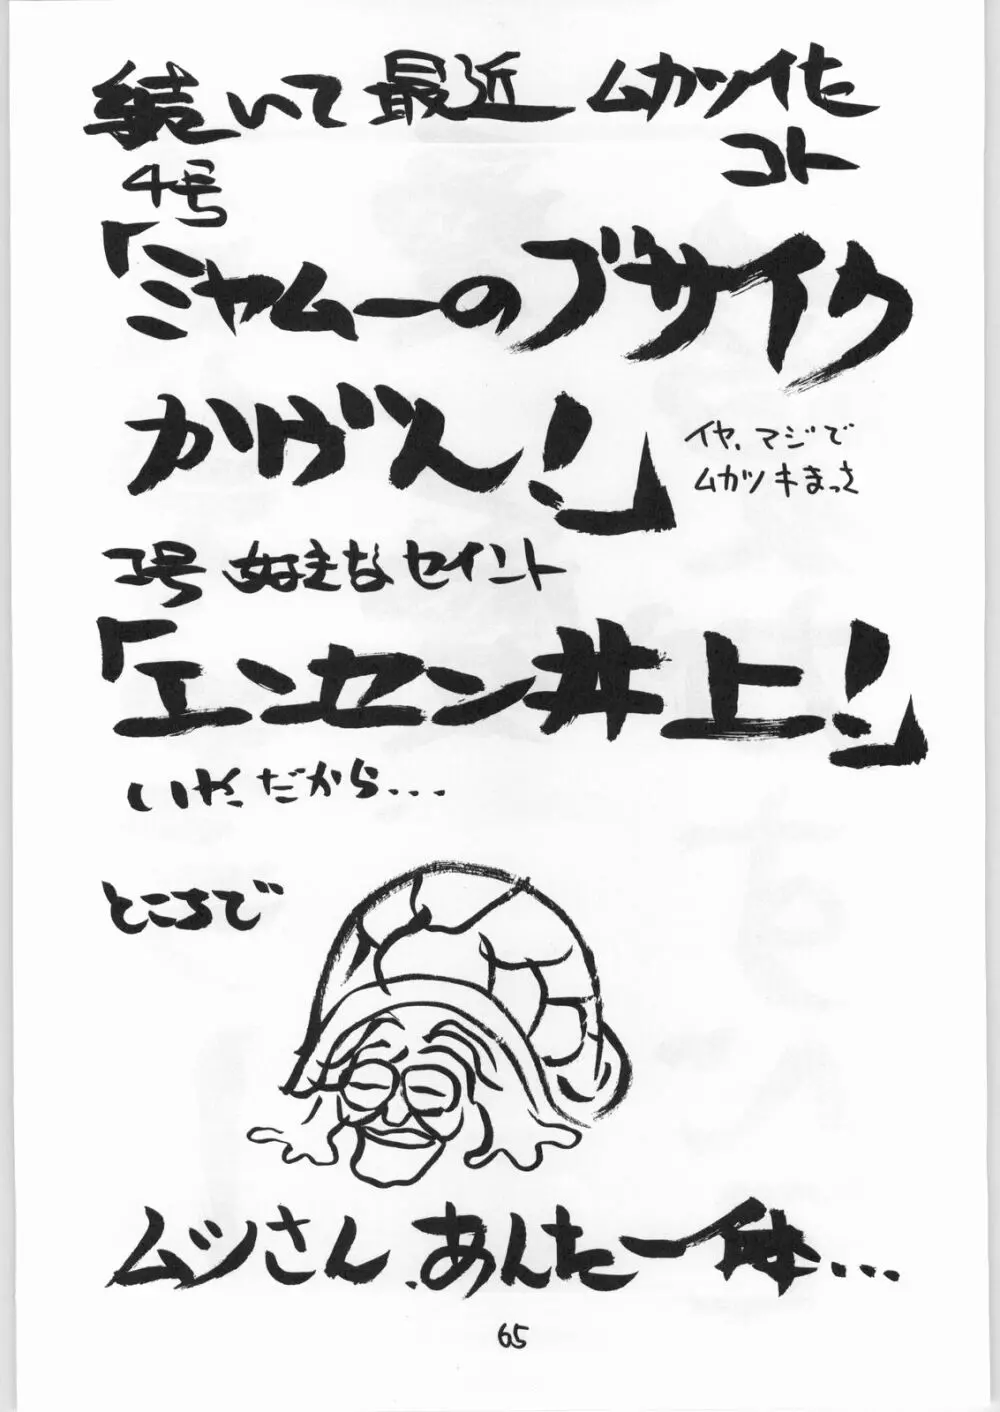 続いて最近ムカツイた
コト
4号
「ミヤムーのブサイク
かげん!」
イヤ、マジで
ムカツキまっさ
コ号 好きなセイント
「エンセン井上!」
いや、だから...
ところで
ムツさん、あんた一体...
65